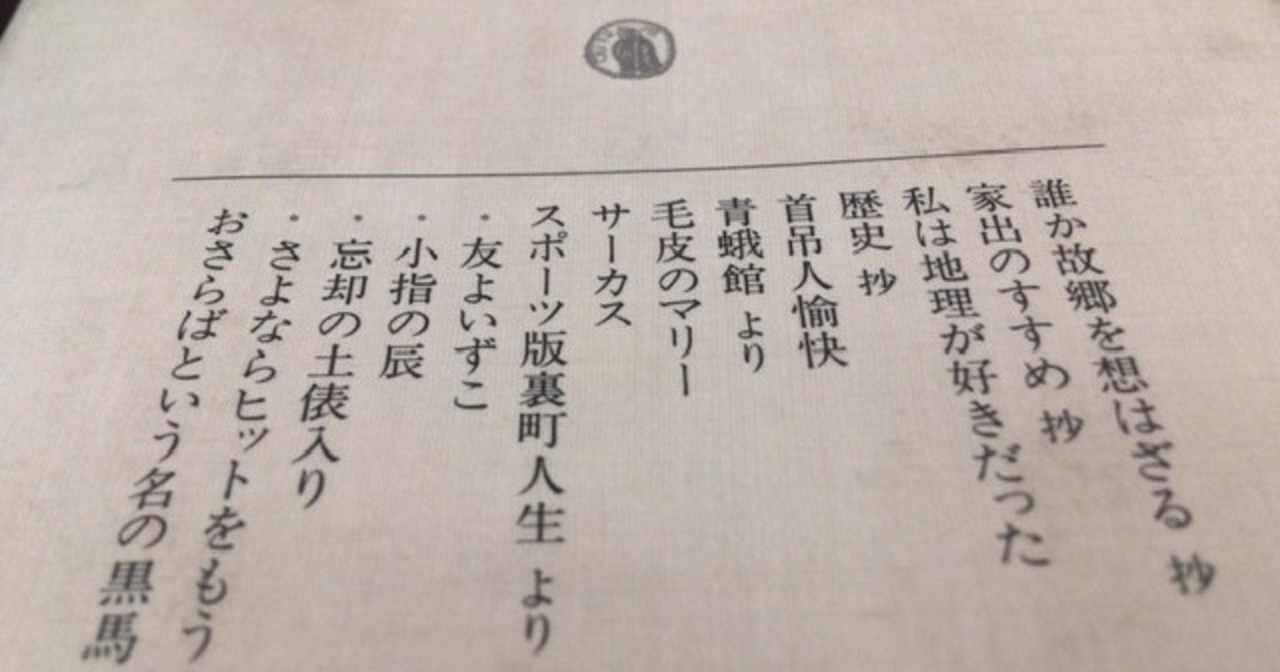 誰か故郷を想はざる 抄
家出のすすめ 抄
私は地理が好きだった
歴史 抄
首吊人愉快
青蛾館 より
毛皮のマリー
サーカス
スポーツ版裏町人生 より
・友よいずこ
・小指の辰
・忘却の土俵入り
・さよならヒットをもう
おさらばという名の黒馬